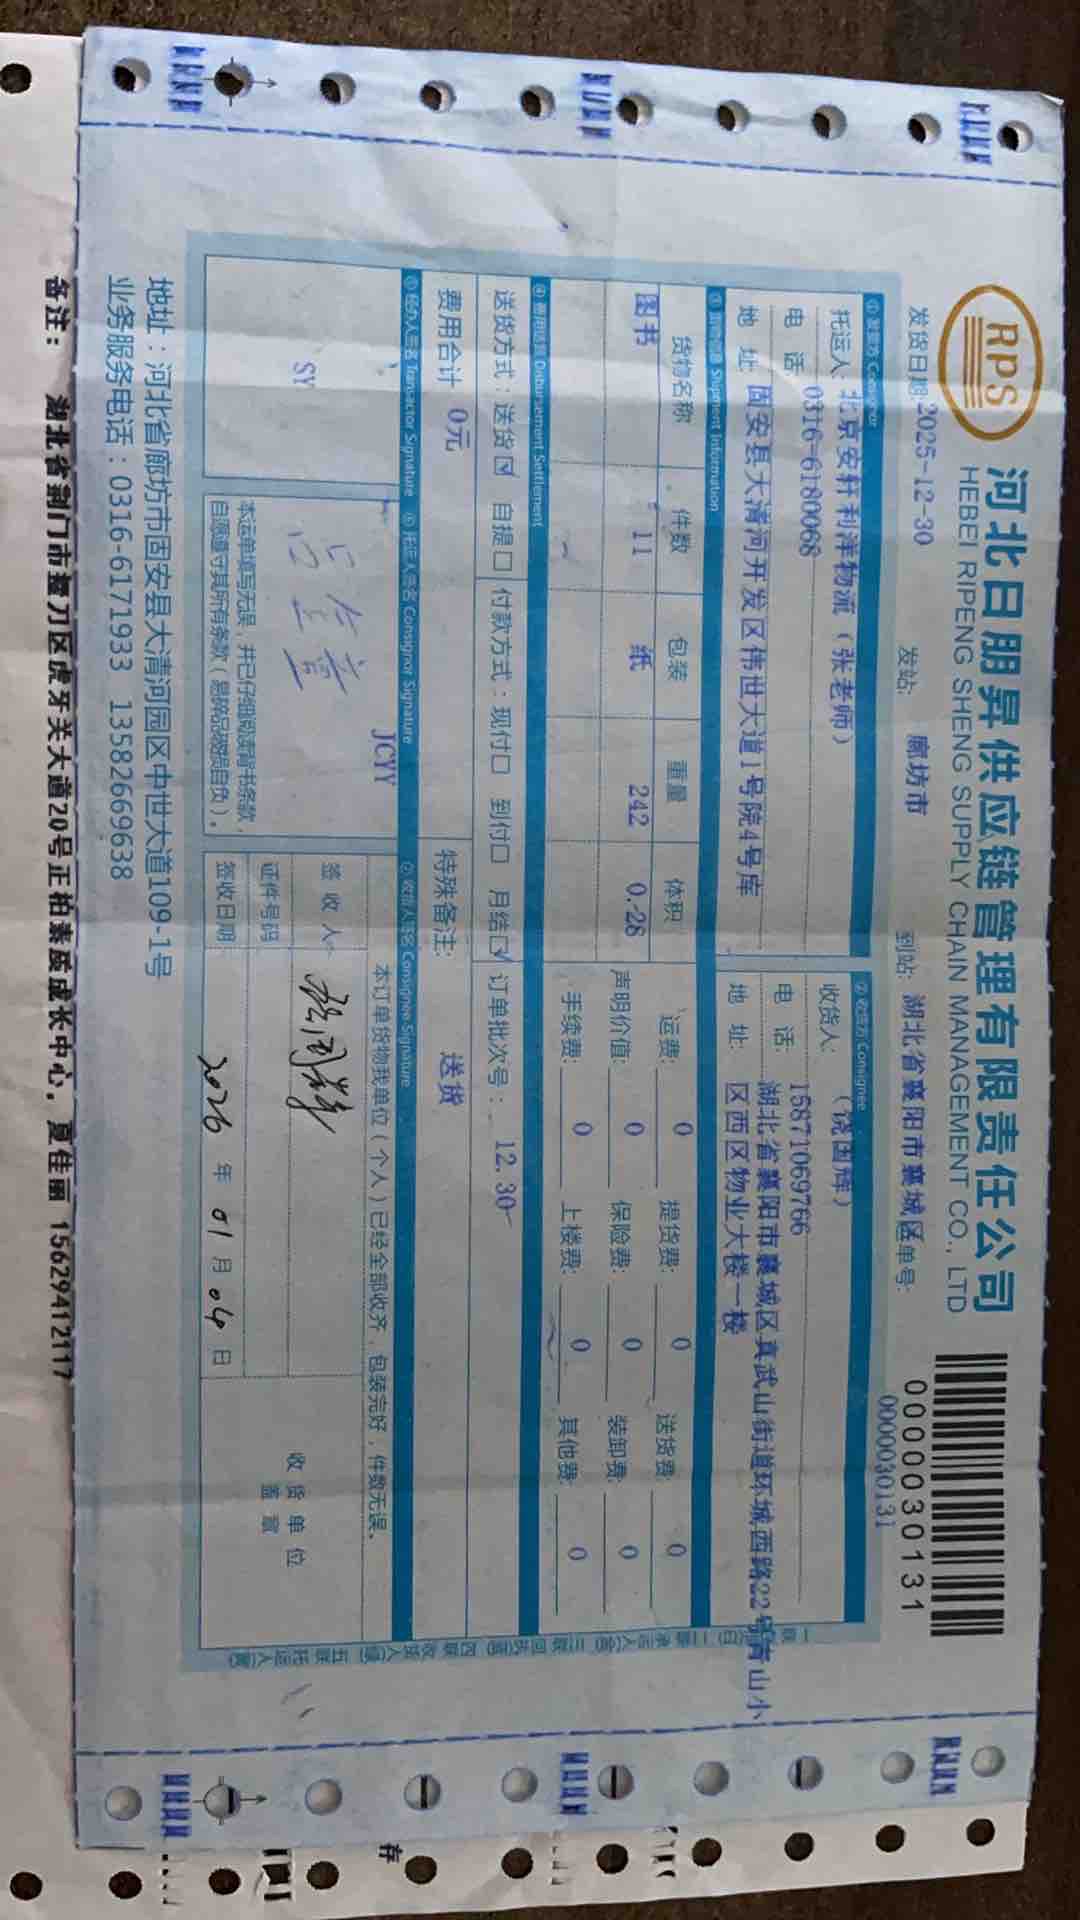 RPS
河北日朋昇供应链管理有限责任公司
HEBEI RIPENG SHENG SUPPLY CHAIN MANAGEMENT CO., LTD
0000030131
0000030131
发货日期:2025-12-30 发站: 廊坊市 到站: 湖北省襄阳市襄城区 单号:
① 发货方 Consignor ② 收货方 Consignee
托运人: 北京安轩利洋物流(张老师) 收货人: (饶国辉)
电 话: 0316-6180068 电 话: 15871069766
地 址: 固安县大清河开发区伟世大道1号院4号库 地 址: 湖北省襄阳市襄城区真武山街道环城西路22号青山小
区西区物业大楼一楼
③ 货物信息 Shipment Information
货物名称 件数 包装 重量 体积 运费: 0 提货费: 0 送货费: 0
图书 11 纸 242 0.28 声明价值: 0 保险费: 0 装卸费: 0
手续费: 0 上楼费: 0 其他费: 0
④ 费用结算 Disbursement Settlement
送货方式: 送货☑ 自提☐ 付款方式: 现付☐ 到付☐ 月结☑ 订单批次号: 12.30
费用合计 0元 特殊备注: 送货
⑤ 经办人签名 Transactor Signature ⑥ 托运人签名 Consignor Signature ⑦ 收货人签名 Consignee Signature
SY
JCYY
本运单填写无误,并已仔细阅读背书条款,
自愿遵守其所有条款(易碎品破损自负)。
本订单货物我单位(个人)已经全部收齐,包装完好,件数无误。
签 收 人
证件号码
签收日期 2026 年 01 月 04 日
收 货 单 位
盖 章
地址:河北省廊坊市固安县大清河园区中世大道109-1号
业务服务电话:0316-6171933 13582669638
备注: 湖北省荆门市掇刀区虎牙关大道20号正柏素质成长中心,夏佳丽 15629412117
存